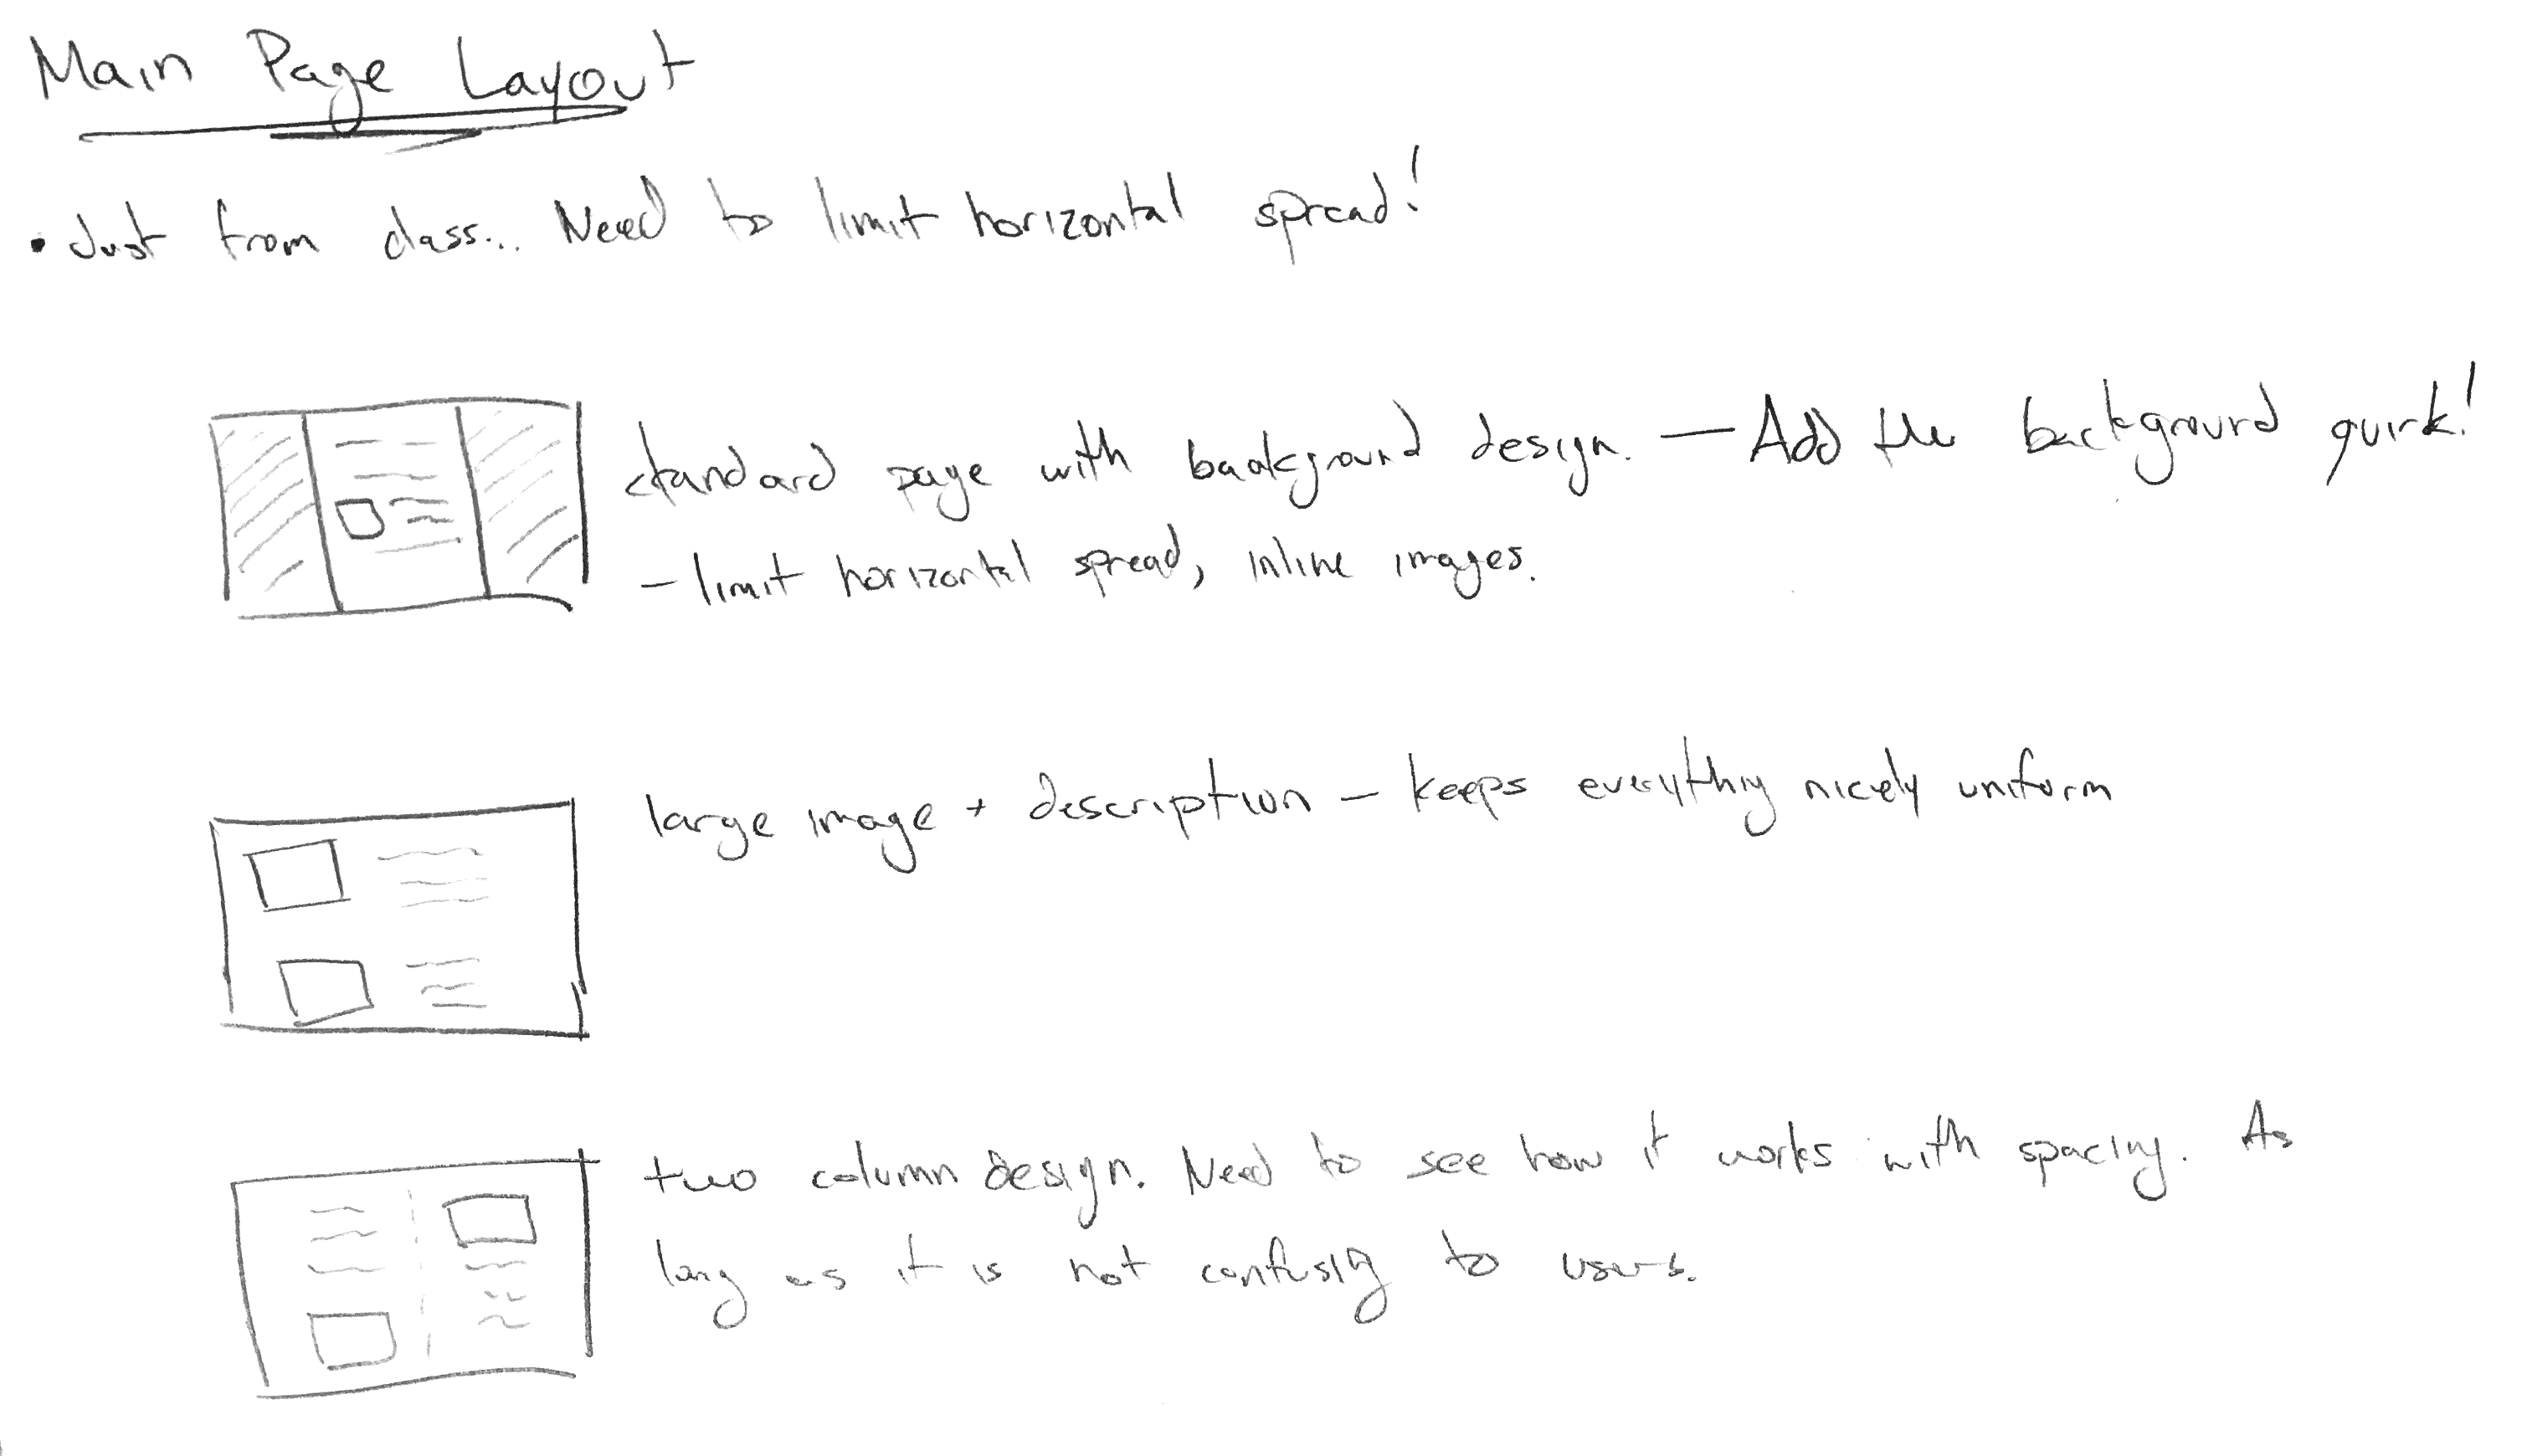 Main Page Layout
• Just from class... Need to limit horizontal spread!
standard page with background design. — Add the background quirk!
- limit horizontal spread, inline images.
large image + description - keeps everything nicely uniform
two column design. Need to see how it works with spacing. As
long as it is not confusing to users.